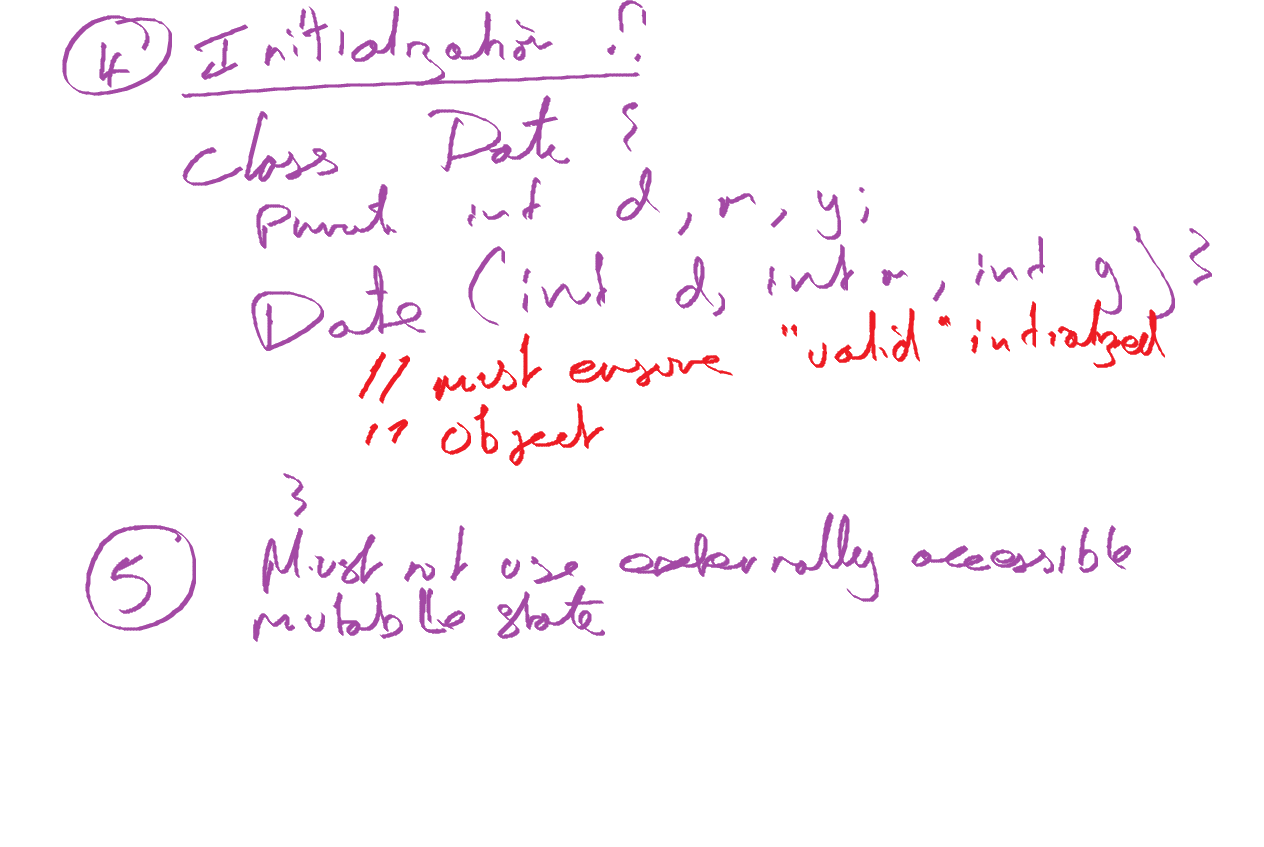 ④ Initialization :?
class Date {
privat int d, m, y;
Date (int d, int m, int y) {
// must ensure "valid" intialized
// object
}
⑤ Must not use externally accessible
mutable state